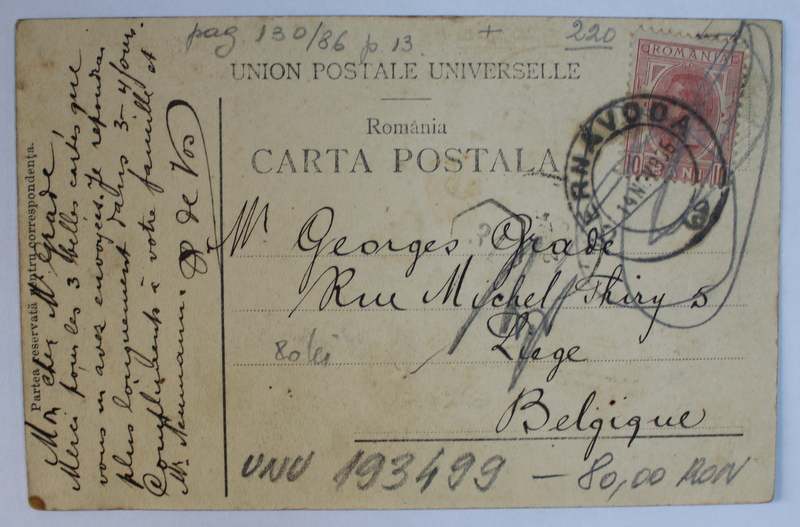 pag 130/86 p. 13. + 220
UNION POSTALE UNIVERSELLE
România
CARTA POSTALA
ROMANIA
10 BANI 10
CERNAVODA
Mr Georges Grade
Rue Michel Thiry 5
Liege
Belgique
80 lei
UNU 193499 – 80,00 RON
Partea reservată pentru corespondența.
Mon cher Mr Grade,
Merci pour les 3 belles cartes que
vous m'avez envoyées. Je repondrai
plus longuement dans 3-4 jours.
Compliments à votre famille et
Mr Neumann. de Vos